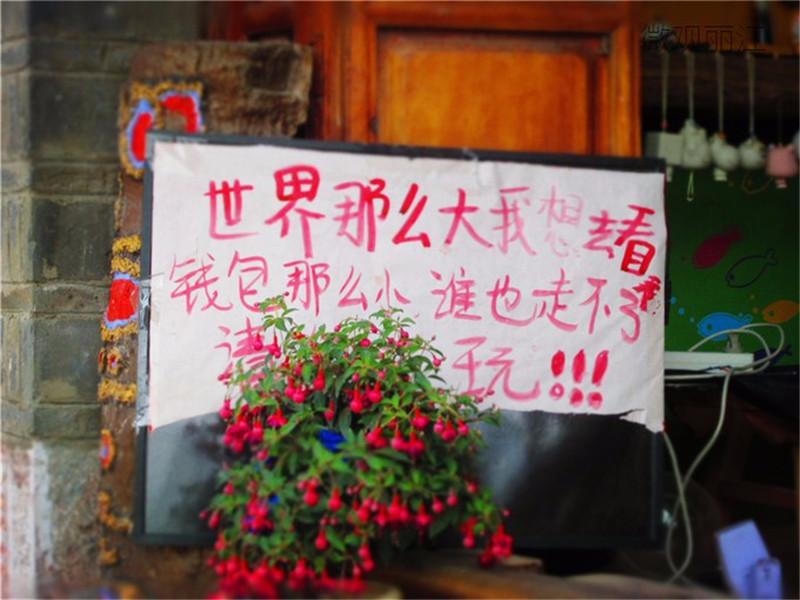 微观丽江
世界那么大我想去看看
钱包那么小谁也走不了
请
玩!!!